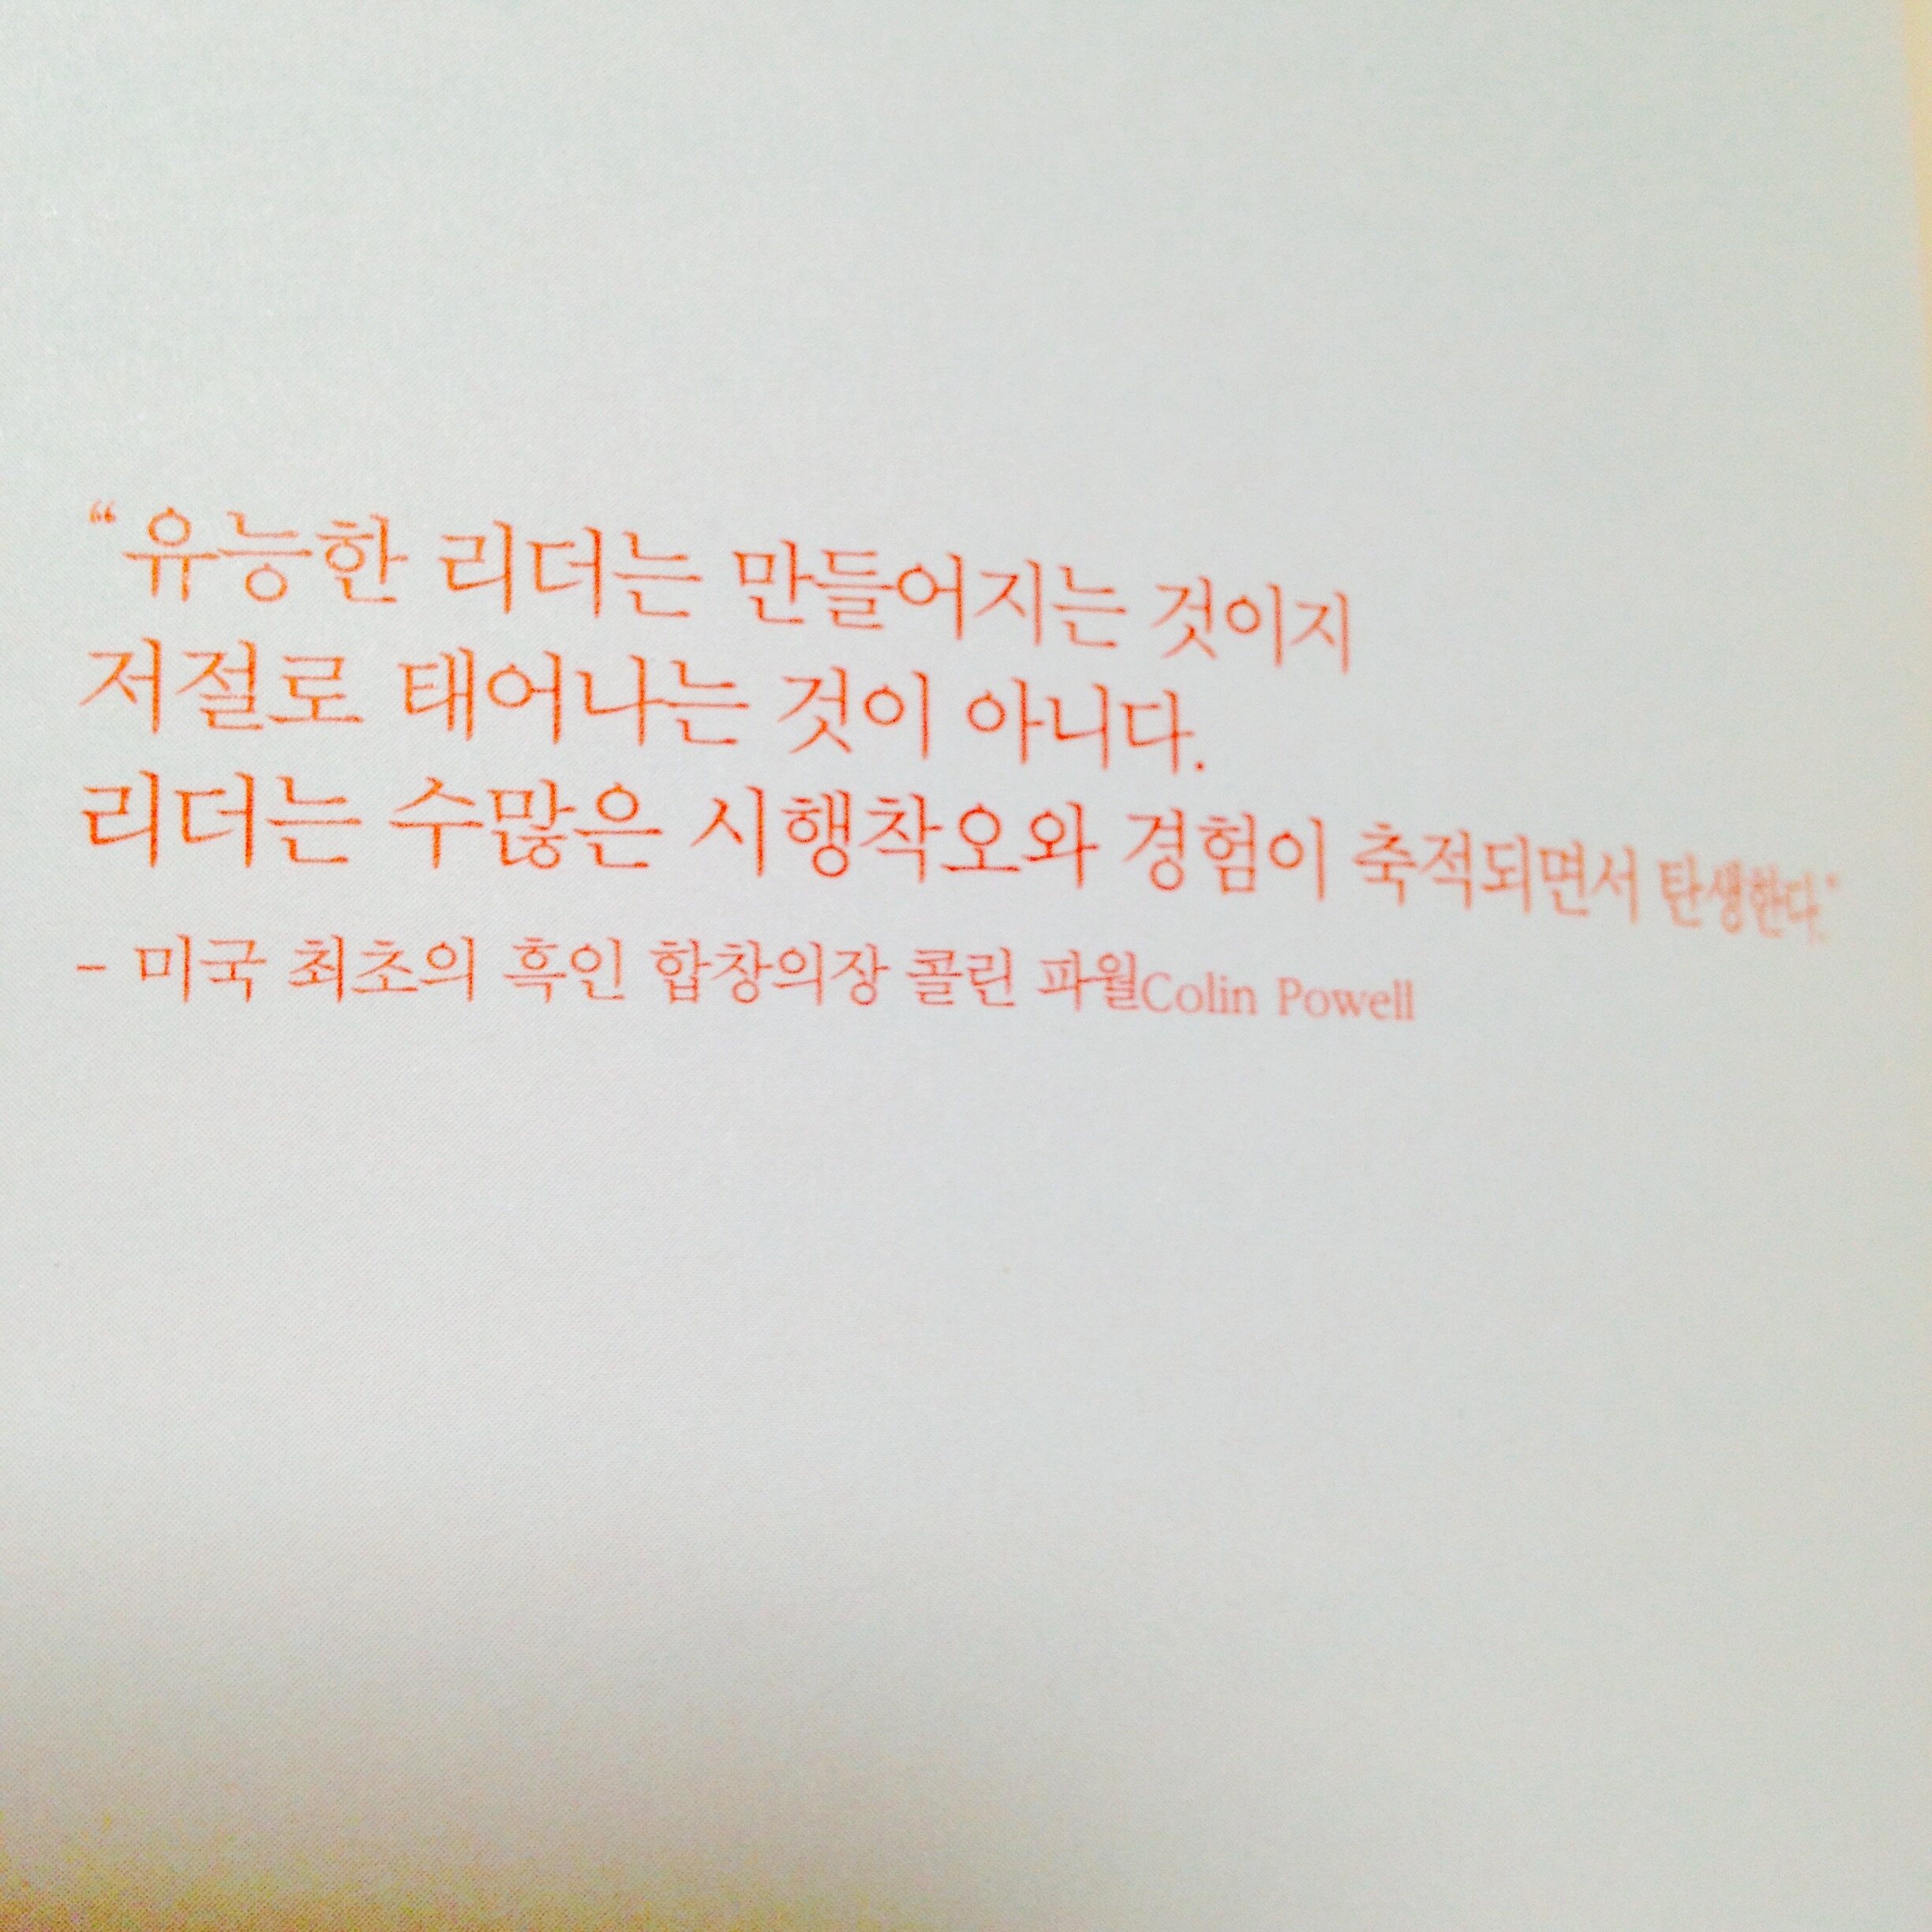 “유능한 리더는 만들어지는 것이지
저절로 태어나는 것이 아니다.
리더는 수많은 시행착오와 경험이 축적되면서 탄생한다.”
- 미국 최초의 흑인 합창의장 콜린 파월Colin Powell